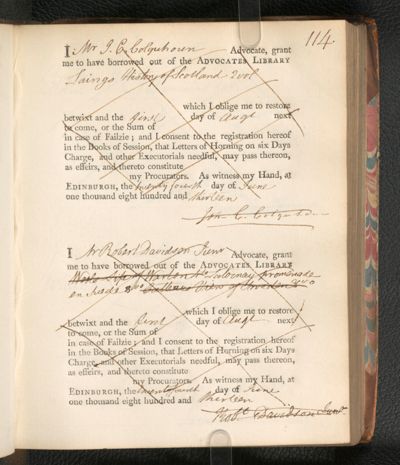 114.
I Mr J. C. Colquhoun Advocate, grant
me to have borrowed out of the ADVOCATES LIBRARY
Laings History of Scotland 2 vols
which I oblige me to restore
betwixt and the first day of Augt next
to come, or the Sum of
in case of Failzie; and I consent to the registration hereof
in the Books of Session, that Letters of Horning on six Days
Charge, and other Executorials needful, may pass thereon,
as effeirs, and thereto constitute
my Procurators. As witness my Hand, at
EDINBURGH, the twenty fourth day of June
one thousand eight hundred and thirteen
I Mr Robert Davidson Junr Advocate, grant
me to have borrowed out of the ADVOCATES LIBRARY
Life of promenade
en View of
which I oblige me to restore
betwixt and the first day of Augt next
to come, or the Sum of
in case of Failzie; and I consent to the registration hereof
in the Books of Session, that Letters of Horning on six Days
Charge, and other Executorials needful, may pass thereon,
as effeirs, and thereto constitute
my Procurators. As witness my Hand, at
EDINBURGH, the twenty fourth day of June
one thousand eight hundred and thirteen
Robt. Davidson Junr